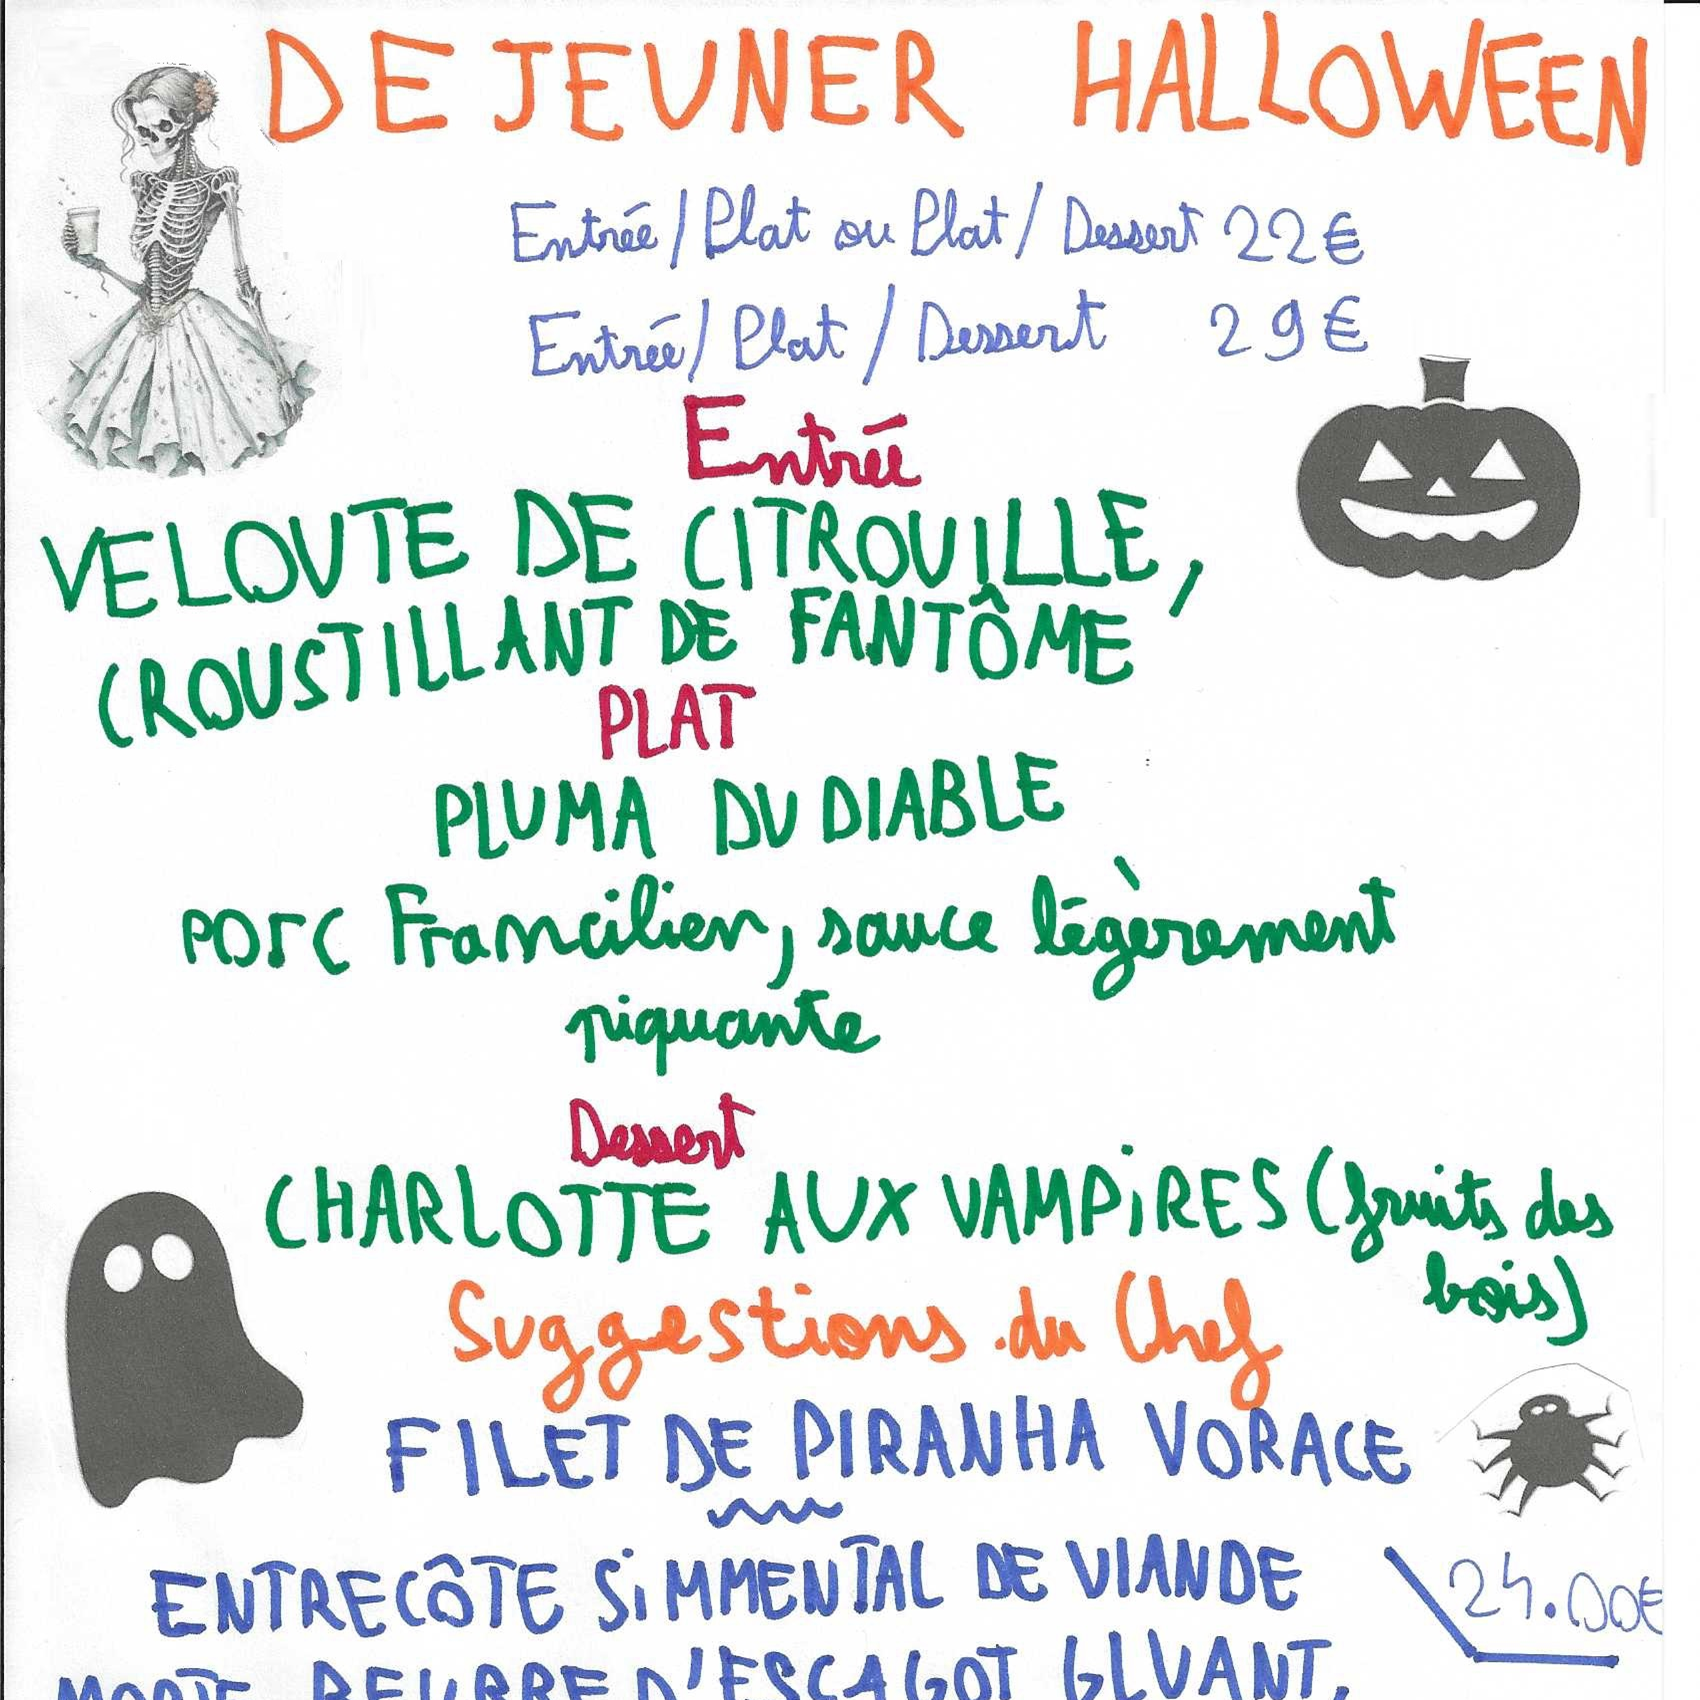 DEJEUNER HALLOWEEN
Entrée/Plat ou Plat/Dessert 22€
Entrée/Plat/Dessert 29€
Entrée
VELOUTE DE CITROUILLE,
CROUSTILLANT DE FANTÔME
PLAT
PLUMA DU DIABLE
Porc Francilien, sauce légèrement
piquante
Dessert
CHARLOTTE AUX VAMPiRES (fruits des
bois)
Suggestions du Chef
FILET DE PIRANHA VORACE
ENTRECÔTE SiMMENTAL DE VIANDE
24.00€
MORTE, BEURRE D'ESCAGOT GLUANT,